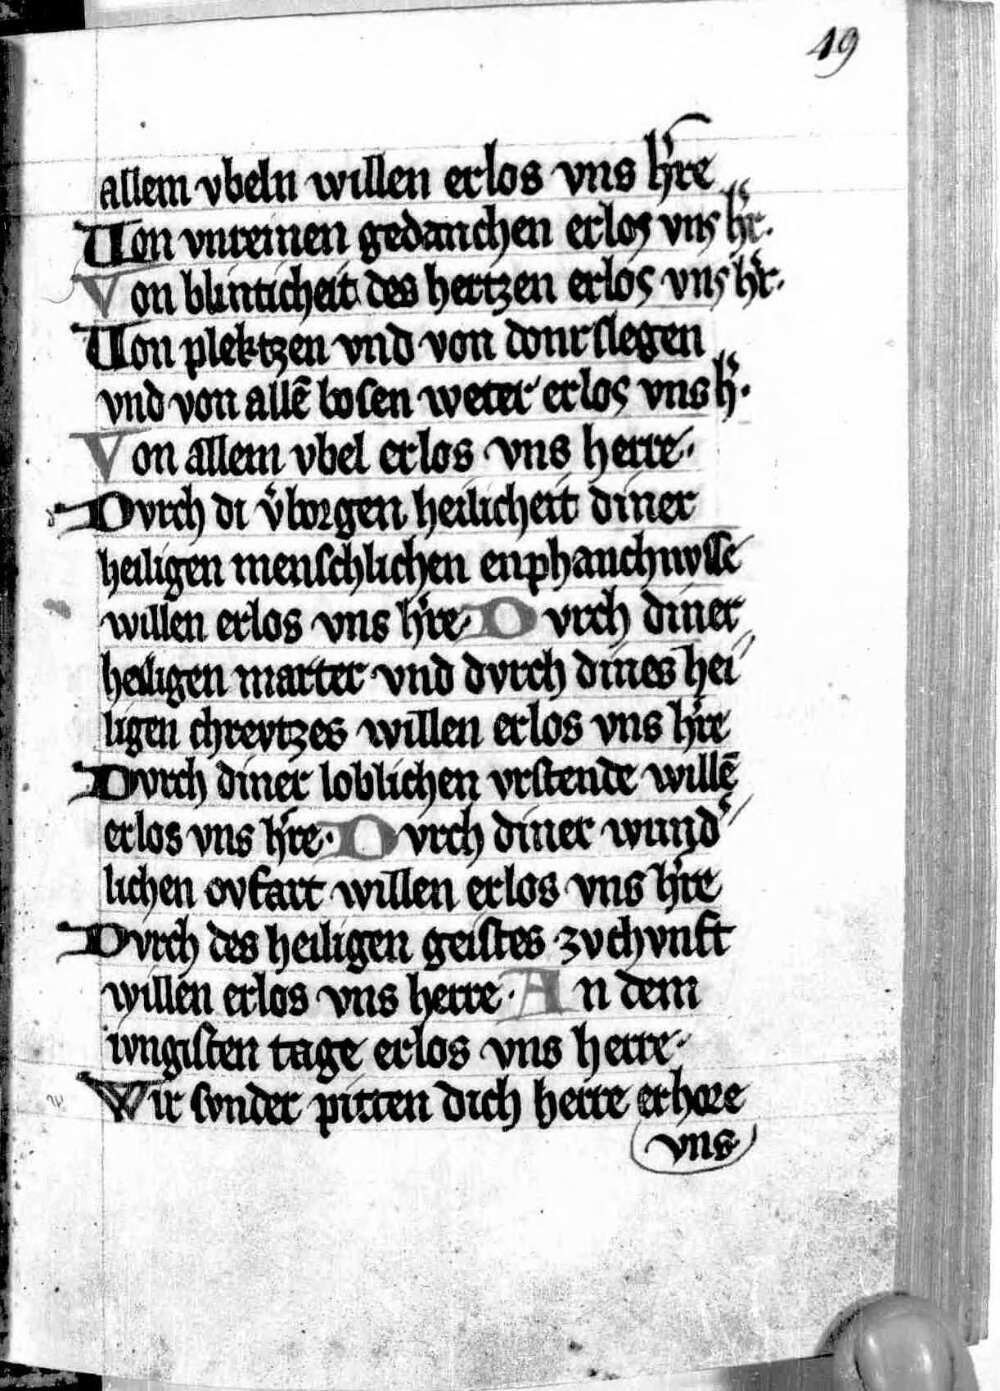 49
allem vbeln willen erlos vns h're
Von vnreinen gedanchen erlos vns h'r.
Von blinticheit des hertzen erlos vns h'r.
Von plektzen vnd von donrslegen
vnd von allē bosen weter erlos vns h'.
Von allem vbel erlos vns herre.
Dvrch di v'borgen heilicheit diner
heiligen menschlichen enphanchnvsse
willen erlos vns h're Dvrch diner
heiligen marter vnd dvrch dines hei
ligen chrevtzes willen erlos vns h're
Dvrch diner loblichen vrstende willē
erlos vns h're. Dvrch diner wund'
lichen ovfart willen erlos vns h're
Dvrch des heiligen geistes zvchvnft
willen erlos vns herre. An dem
ivngisten tage erlos vns herre.
Wir svnder pitten dich herre erhore
vns